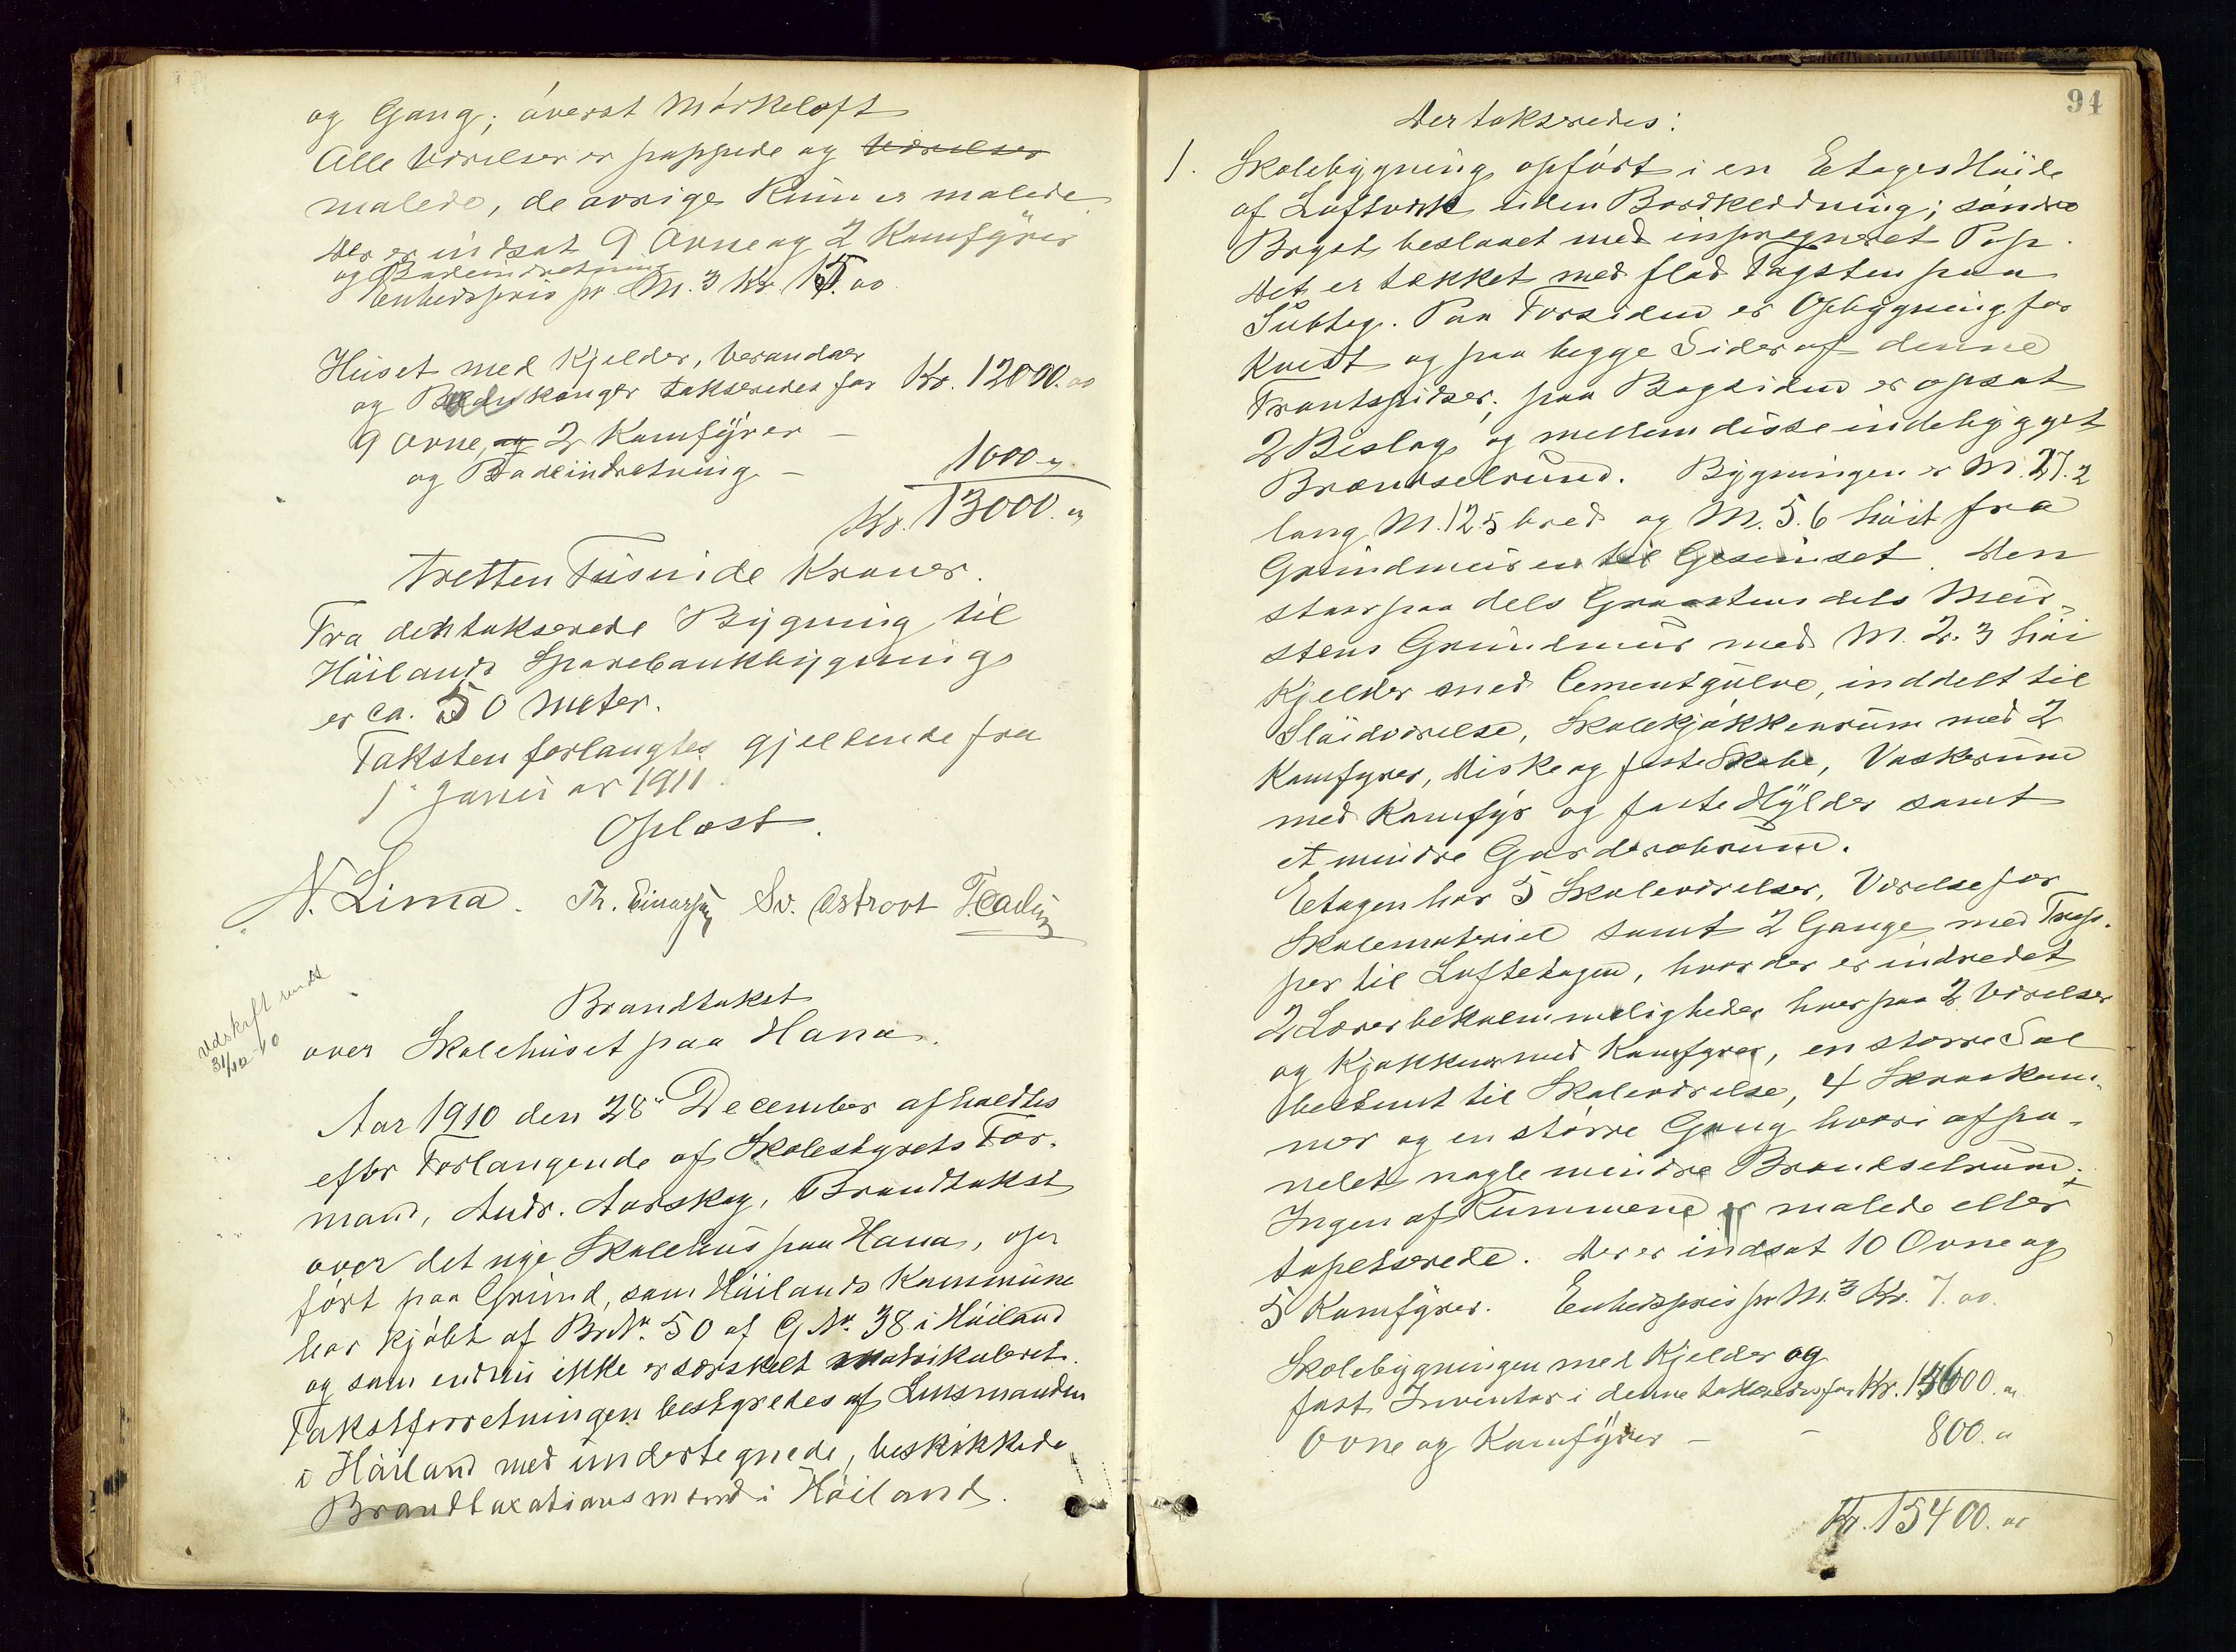 og Gang; överst Mörkeloft
Alle Værelser er pappede og Værelser
malede, de øvrige Rum er malede
Der er indsat 9 Ovne og 2 Komfyrer
og Badeindretning
Enhedspris pr M.3 Kr. 15.00
Huset med Kjelder, Verandaer
og Balkonger takseredes for Kr. 12000.00
9 Ovne, og 2 Komfyrer —
og Badeindretning — 1000 "
Kr. 13000. "
Tretten Tusinde Kroner.
Fra den takserede Bygning til
Höilands Sparebankbygning
er ca. 50 Meter.
Taksten forlangtes gjeldende fra
1. Januar 1911.
Oplæst.
N. Lima. Th. Einarsen Sv. Østrovt
Udskrift sendt
31/12-10
Brandtakst
over Skolehuset paa Hana.
Aar 1910 den 28" December afholdtes
efter Forlangende af Skolestyrets For-
mand, Andr. Aarskog, Brandtakst
over det nye Skolehus paa Hana, op
fört paa Grund, som Höilands Kommune
har kjöbt af Br.Nr. 50 af G.Nr. 38 i Höiland
og som endnu ikke er særskilt matrikuleret.
Takstforretningen bestyredes af Lensmanden
i Höiland med undertegnede, beskikkede
Brandtaxationsmænd i Höiland.
94
Der takseredes:
1. Skolebygning opfört i en Etages Höide
af Laftverk uden Bordklædning; söndre
Bryst beslaaet med inpregneret Pap.
Det er tækket med flad Tagsten paa
Subtag. Paa Forsiden er Opbygning for
Kvist og paa begge Sider af denne
Frontspidser; paa Bagsiden er opsat
2 Bislag og mellem disse indebygget
Brændselrum. Bygningen er M. 27.2
lang M. 12.5 bred og M. 5.6 höit fra
Grundmuren til Gesimset. Den
staar paa dels Graasten dels Mur-
stens Grundmur med M. 2.3 höi
Kjelder med Cementgulve, inddelt til
Slöidværelse, Skolekjökkenrum med 2
Komfyrer, Diske og faste Skabe, Vaskerum
med Komfyr og faste Hylder samt
et mindre Garderoberum.
Etagen har 5 Skoleværelser, Værelse for
Skolemateriel samt 2 Gange med Trap-
per til Loftetagen, hvor der er indredet
2 Lærerbekvemmeligheder hver paa 2 Værelser
og Kjøkken med Komfyrer, en större Sal
bestemt til Skoleværelse, 4 Skraakam-
mer og en större Gang hvori afpa-
nelet nogle mindre Brændselrum;
Ingen af Rummene er malede eller
tapetserede. Der er indsat 10 Ovne og
5 Komfyrer. Enhedspris pr M.3 Kr. 7.00.
Skolebygningen med Kjelder og
fast Inventar i denne takseredes for Kr. 14600. "
Ovne og Komfyrer — — 800. "
Kr. 15400.00